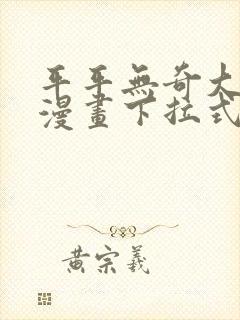 平平無奇大
漫畫下拉式
黃宗羲